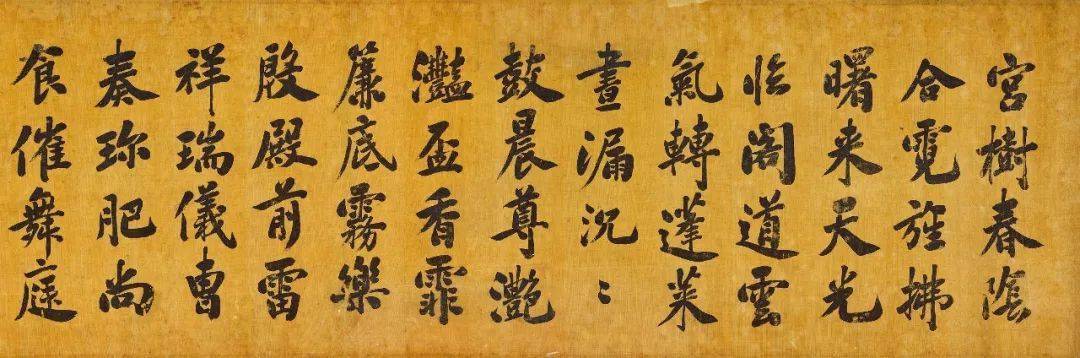 宮樹春陰
合霓旌拂
曙来天光
临閣道雲
氣轉蓬莱
晝漏沉〻
鼓晨尊灧
灩盃香霏
簾底霧樂
殷殿前雷
祥瑞儀曹
奏珍肥尚
食催舞庭